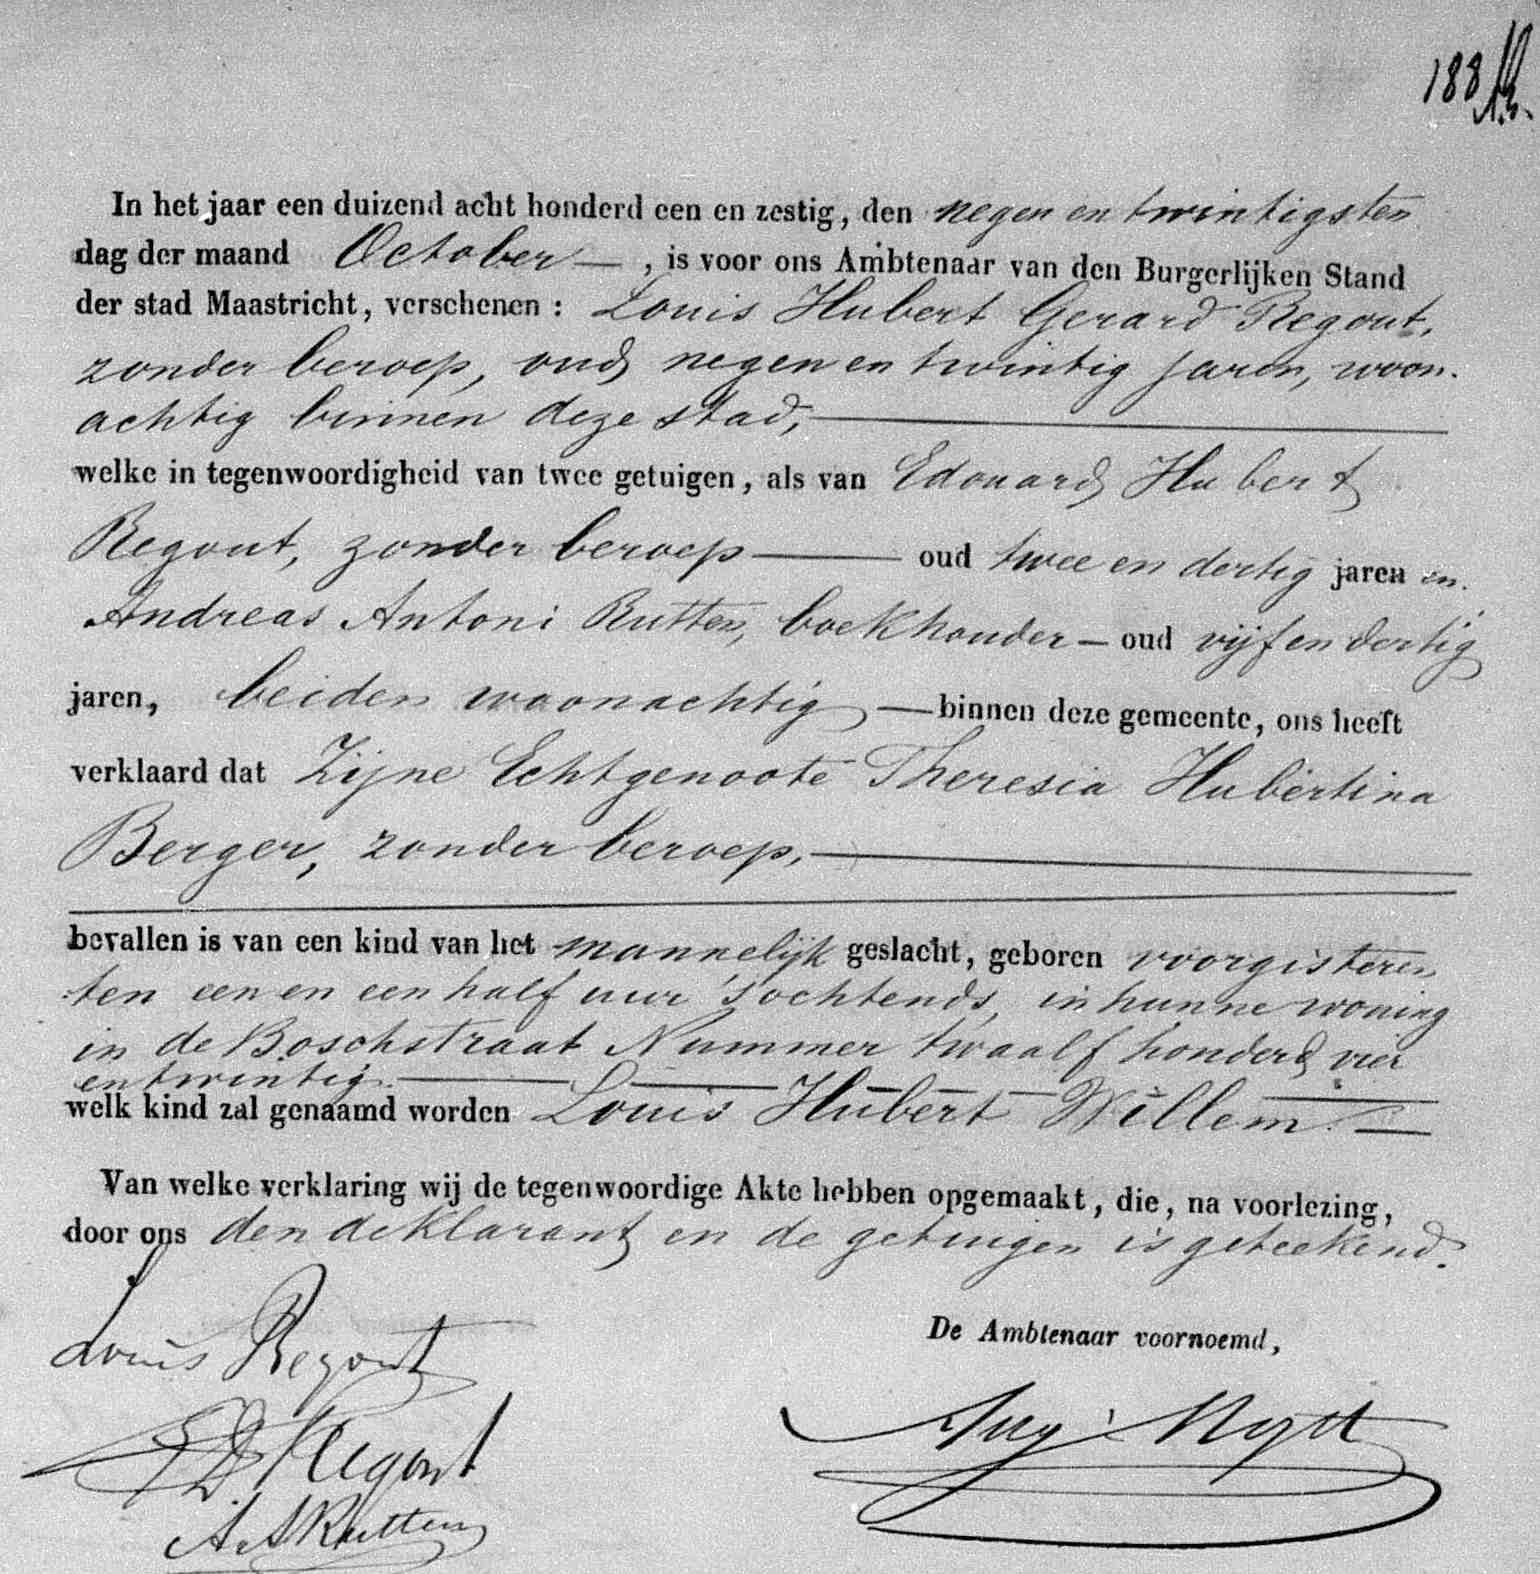 188
In het jaar een duizend acht honderd een en zestig, den negen en twintigsten
dag der maand October —, is voor ons Ambtenaar van den Burgerlijken Stand
der stad Maastricht, verschenen : Louis Hubert Gerard Regout,
zonder beroep, oud negen en twintig jaren, woon-
achtig binnen deze stad, —
welke in tegenwoordigheid van twee getuigen, als van Edouard Hubert
Regout, zonder beroep — oud twee en dertig jaren en
Andreas Antoni Rutten, boekhouder — oud vijf en dertig
jaren, beiden woonachtig — binnen deze gemeente, ons heeft
verklaard dat Zijne Echtgenoote Theresia Hubertina
Berger, zonder beroep. —
bevallen is van een kind van het mannelijk geslacht, geboren voorgisteren
ten een en een half uur 's ochtends, in hunne woning
in de Boschstraat Nummer twaalf honderd vier
en twintig. —
welk kind zal genaamd worden Louis Hubert Willem. —
Van welke verklaring wij de tegenwoordige Akte hebben opgemaakt, die, na voorlezing,
door ons den deklarant en de getuigen is geteekend.
Louis Regout
De Ambtenaar voornoemd,
Ed Regout
A. A Rutten